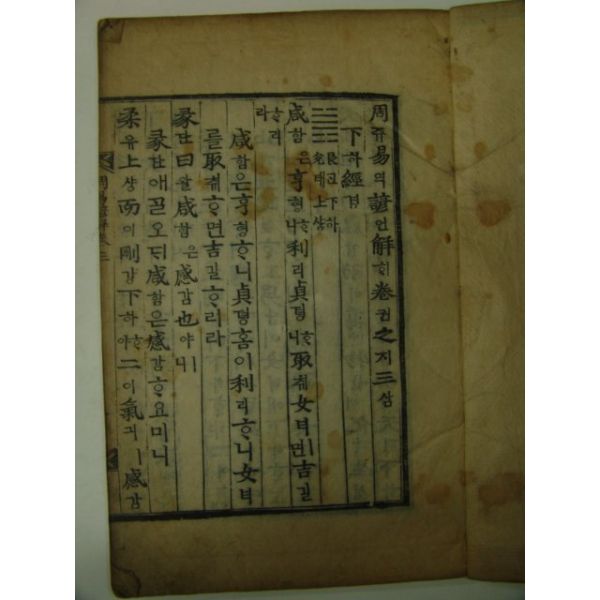 周쥬易역諺언解ᄒᆡ卷권之지三삼
下하經경
䷞艮간下하兌태上샹
咸함은亨형ᄒᆞ니利리貞뎡ᄒᆞ니取ᄎᆔ女녀ㅣ면吉길
ᄒᆞ리라
咸함은亨형ᄒᆞ니貞뎡홈이利리ᄒᆞ니女녀
를取ᄎᆔᄒᆞ면吉길ᄒᆞ리라
彖단曰왈咸함은感감也야ㅣ니
彖단애ᄀᆞᆯ오ᄃᆡ咸함은感감ᄒᆞ요미니
柔유上샹而이剛강下하ᄒᆞ야二이氣긔ㅣ感감
周易諺解卷三